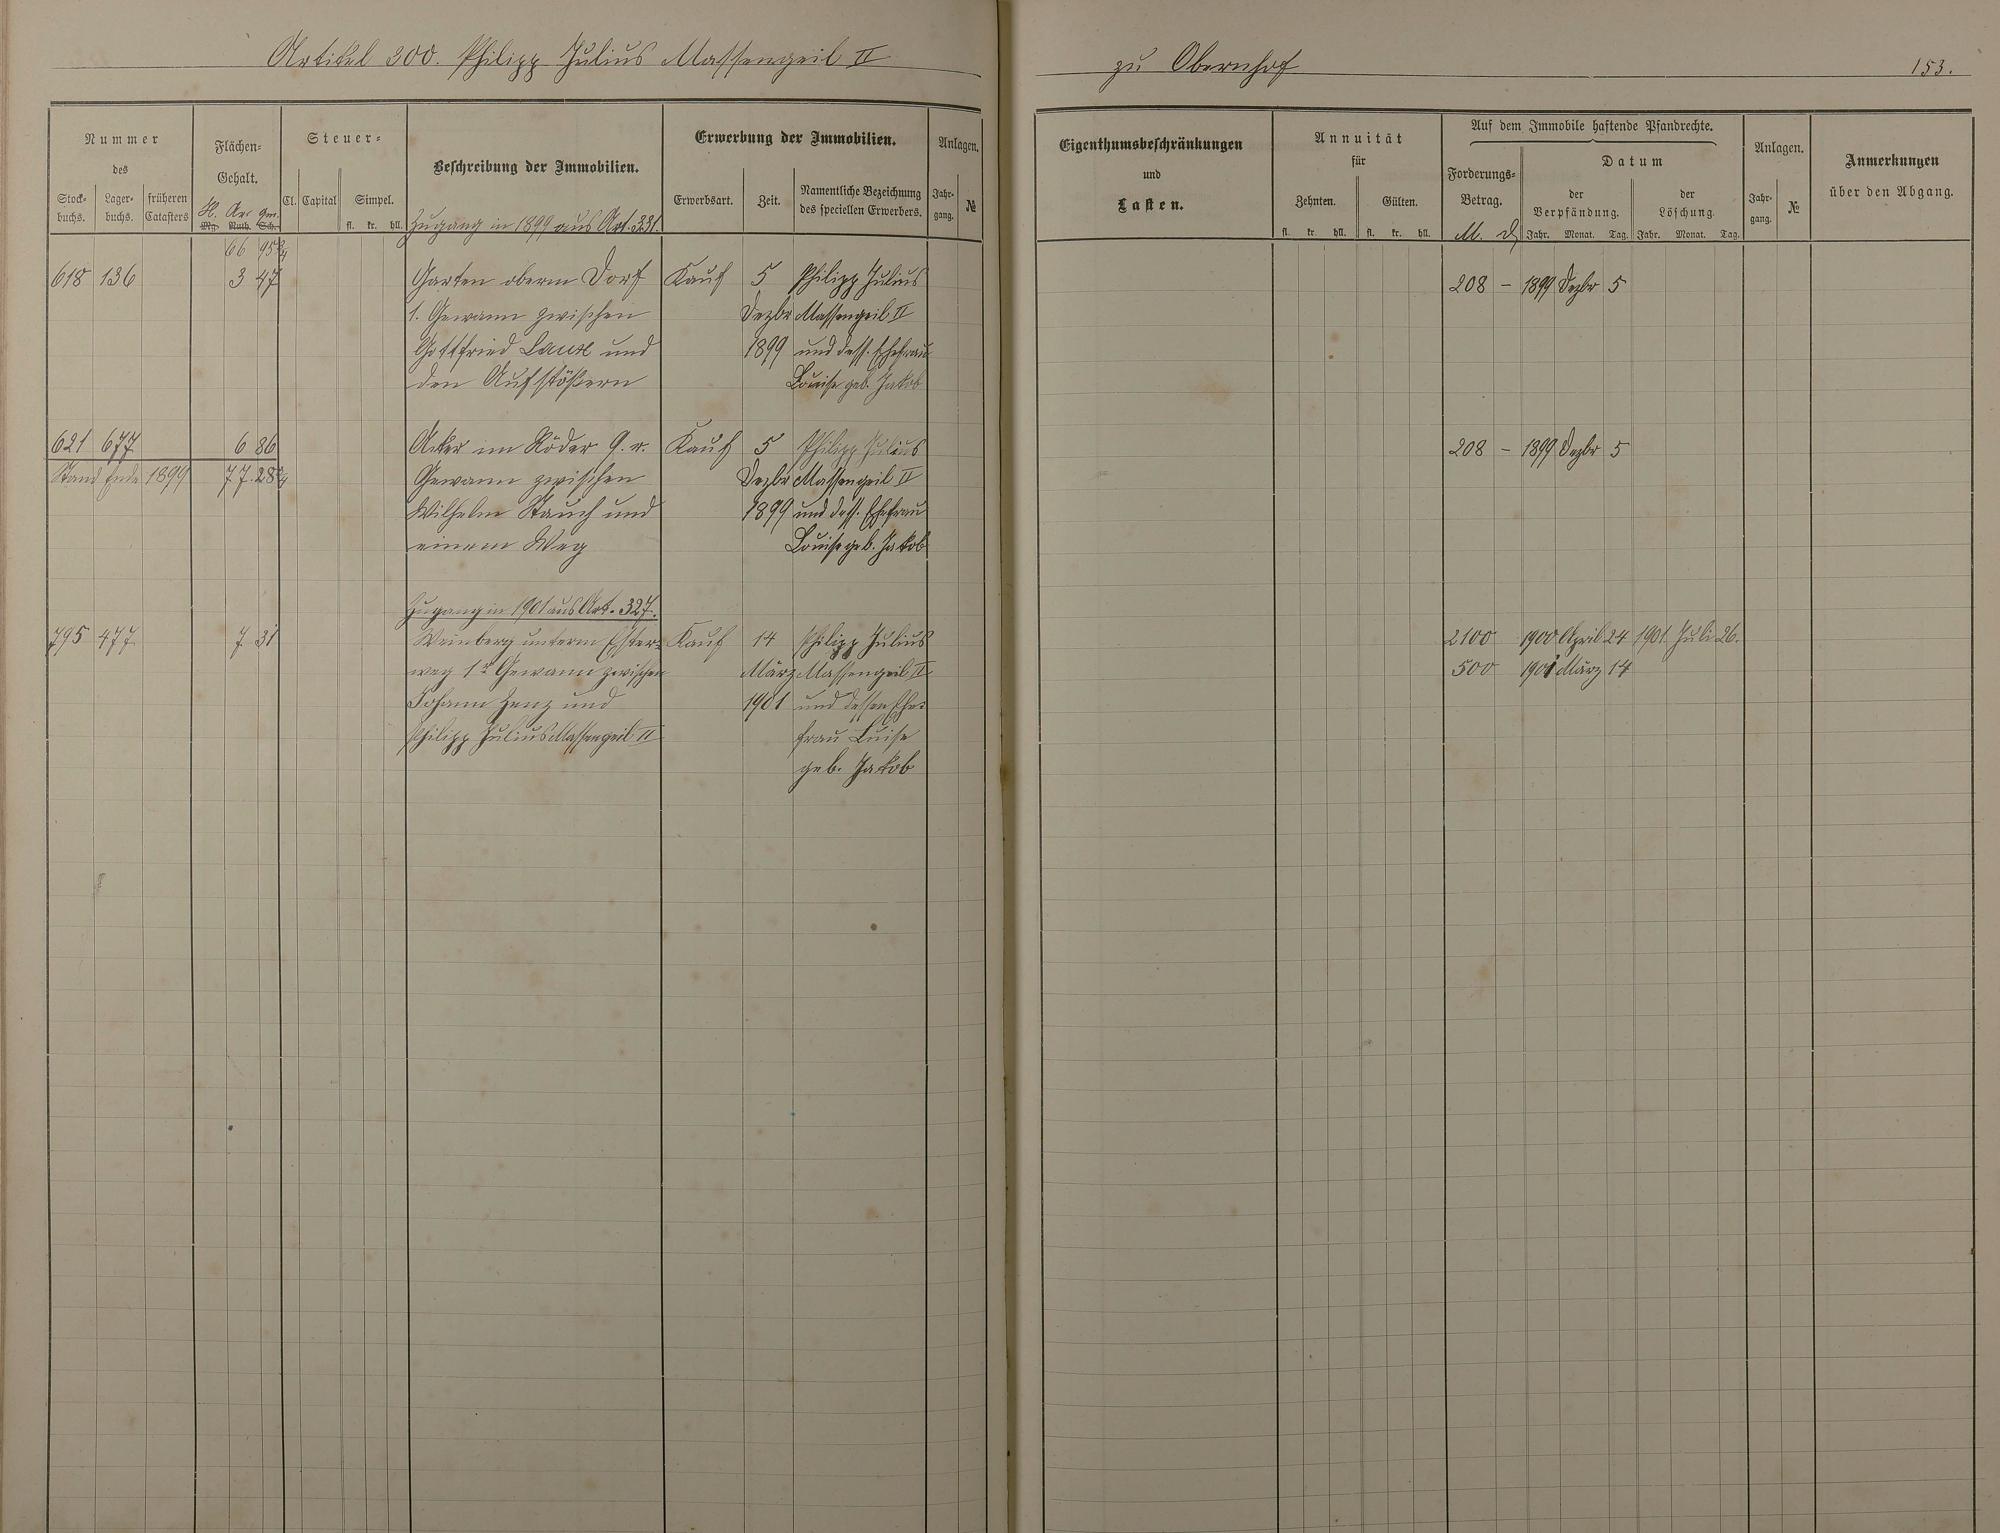 Artikel 300. Philipp Julius Massengeil II
zu Obernhof
153.
Nummer
des
Stock-
buchs.
Lager-
buchs.
früheren
Catasters
Flächen-
Gehalt.
H. Ar qm.
Mg. Ruth. Sch.
Steuer-
Cl. Capital
Simpel.
fl. kr. hll.
Beschreibung der Immobilien.
Erwerbung der Immobilien.
Erwerbsart.
Zeit.
Namentliche Bezeichnung
des speciellen Erwerbers.
Anlagen.
Jahr-
gang.
№
Eigenthumsbeschränkungen
und
Lasten.
Annuität
für
Zehnten.
Gülten.
fl. kr. hll. fl. kr. hll.
Auf dem Immobile haftende Pfandrechte.
Forderungs-
Betrag.
M. d
Datum
der
Verpfändung.
der
Löschung.
Jahr. Monat. Tag. Jahr. Monat. Tag.
Anlagen.
Jahr-
gang.
№
Anmerkungen
über den Abgang.
Zugang in 1899 aus Art. 331.
66 95 3/4
618 136 3 47 Garten oberm Dorf Kauf 5 Philipp Julius 208 – 1899 Dezbr 5
1. Gewann zwischen Dezbr Massengeil II
Gottfried Laux und 1899 und dess. Ehefrau
den Aufstößern Louise geb. Jakob
621 677 6 86 Acker im Röder 9. r. Kauf 5 Philipp Julius 208 – 1899 Dezbr 5
Stand Ende 1899 77 28 3/4 Gewann zwischen Dezbr Massengeil II
Wilhelm Stauch und 1899 und dess. Ehefrau
einem Weg Louise geb. Jakob
Zugang in 1901 aus Art. 327.
795 477 7 31 Weinberg unterm Ester- Kauf 14 Philipp Julius 2100 1900 April 24 1901 Juli 26.
weg 1r Gewann zwischen März Massengeil II 500 1901 März 14
Johann Henz und 1901 und dessen Ehe-
Philipp Julius Massengeil II frau Luise
geb. Jakob